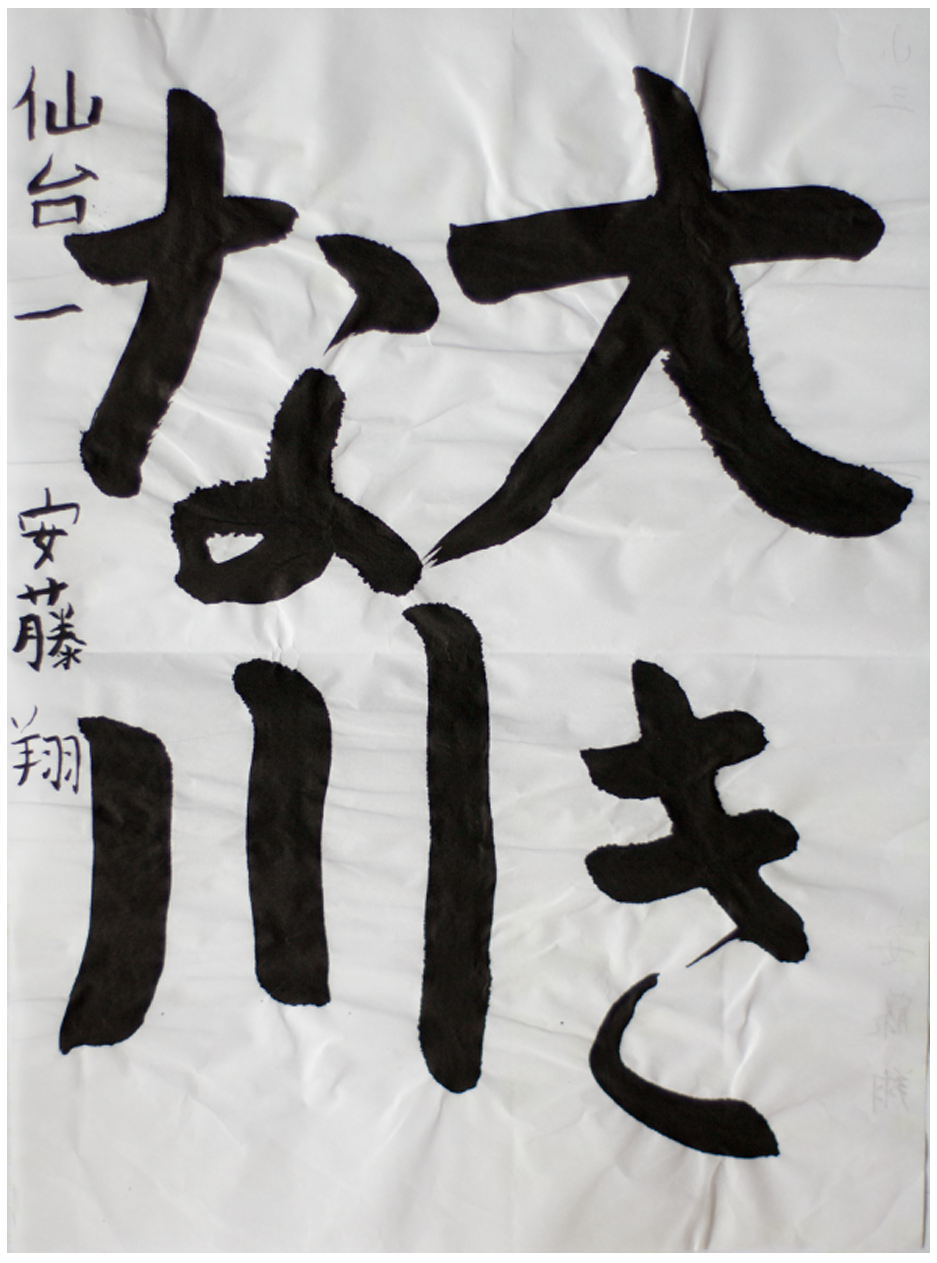 大き
な川
仙台一 安藤 翔